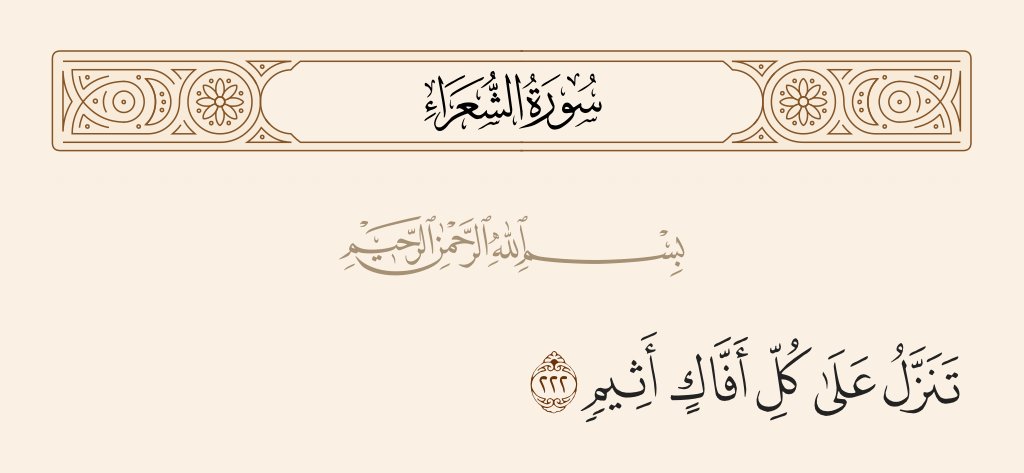 سُورَةُ الشُّعَرَاءِ
بِسْمِ ٱللَّهِ ٱلرَّحْمَٰنِ ٱلرَّحِيمِ
تَنَزَّلُ عَلَىٰ كُلِّ أَفَّاكٍ أَثِيمٍ ٢٢٢